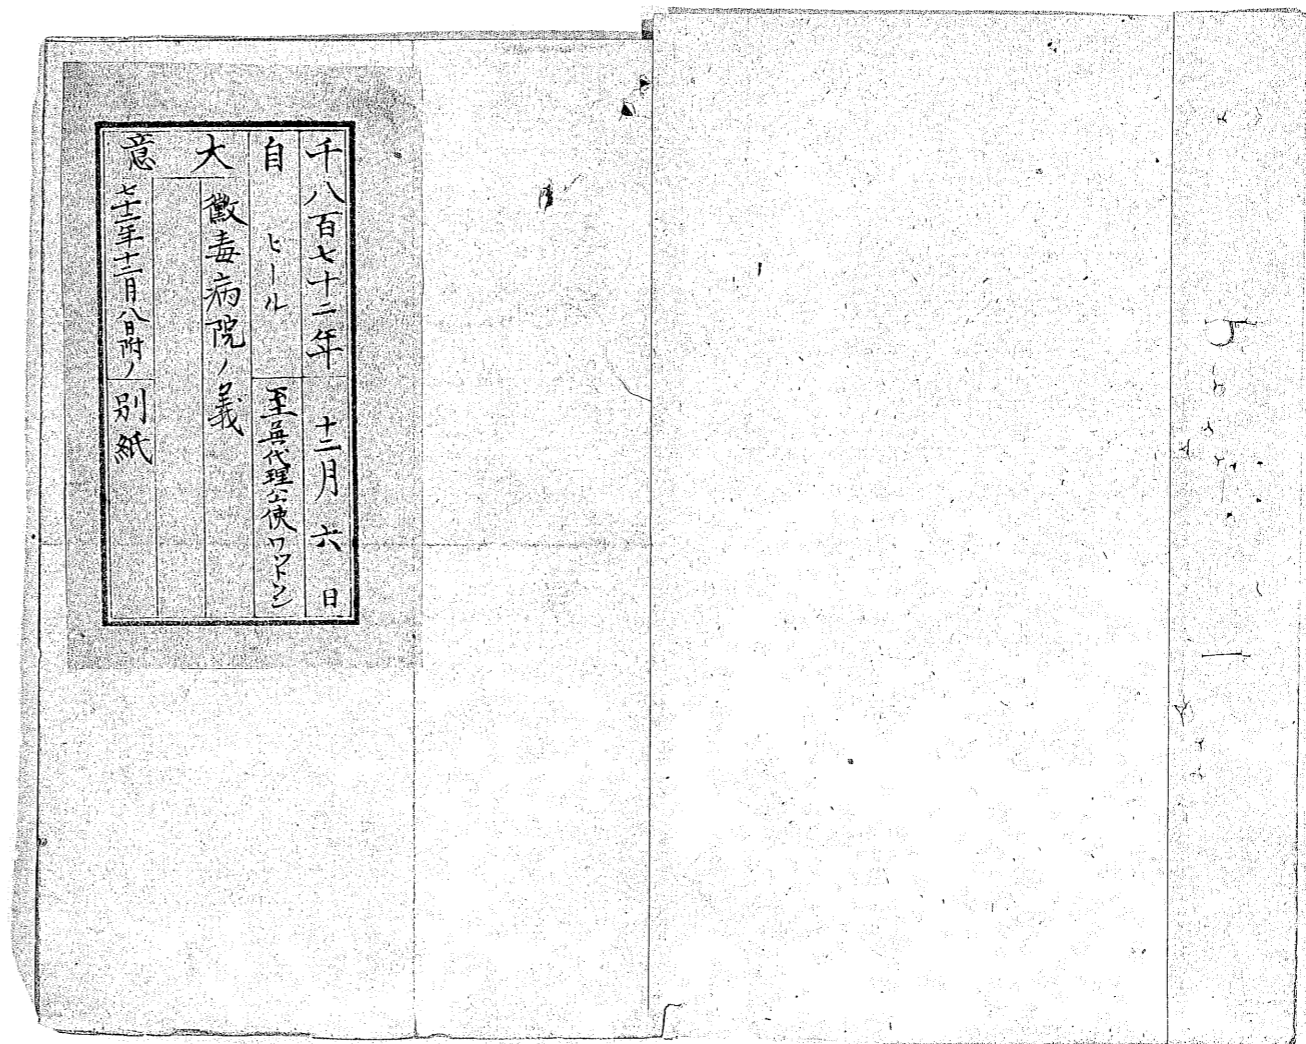 千八百七十二年 十二月 六 日
自 ヒール 至 英代理公使ワットソン
大意
黴毒病院ノ義
七十二年十二月八日附ノ 別紙